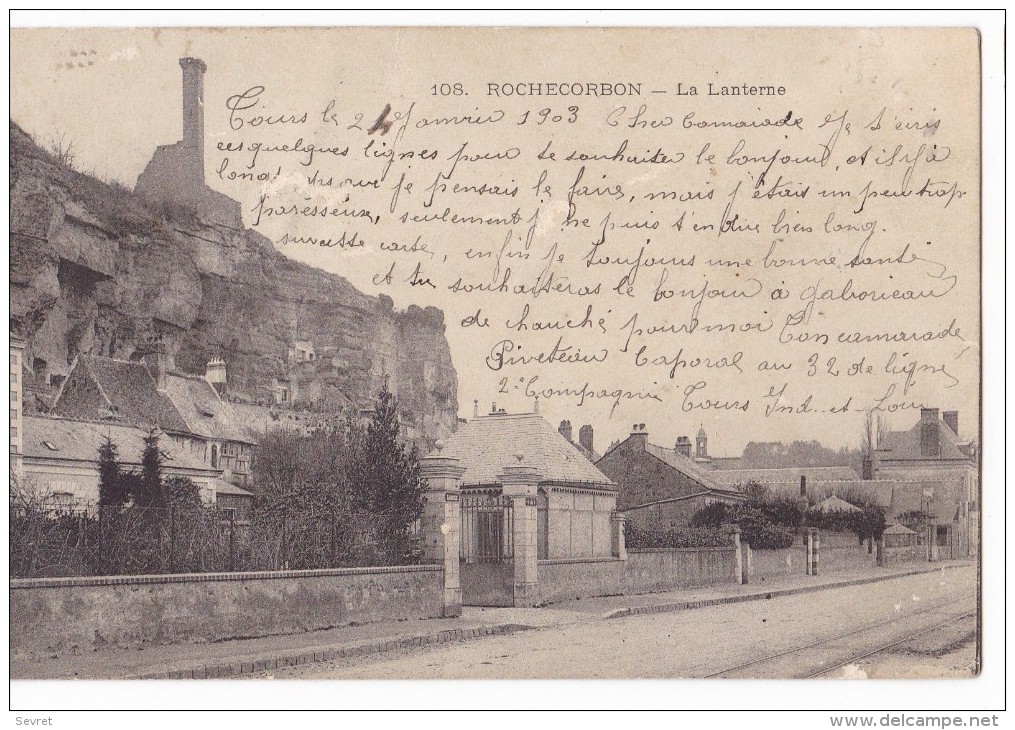 108. ROCHECORBON — La Lanterne
Tours le 24 Janvier 1903 Cher Camarade Je t'ecris
ces quelques lignes pour te souhaiter le bonjour, et il y a
longtemps que je pensais le faire, mais j'étais un peu trop
paresseux, seulement je ne puis t'en dire bien long.
sur cette carte, enfin je toujours une bonne santé
et tu souhaiteras le bonjour à Gaborieau
de chauché pour moi Ton camarade
Piveteau Caporal au 32 de ligne
2e Compagnie Tours Ind. et Loir
Sevret
www.delcampe.net